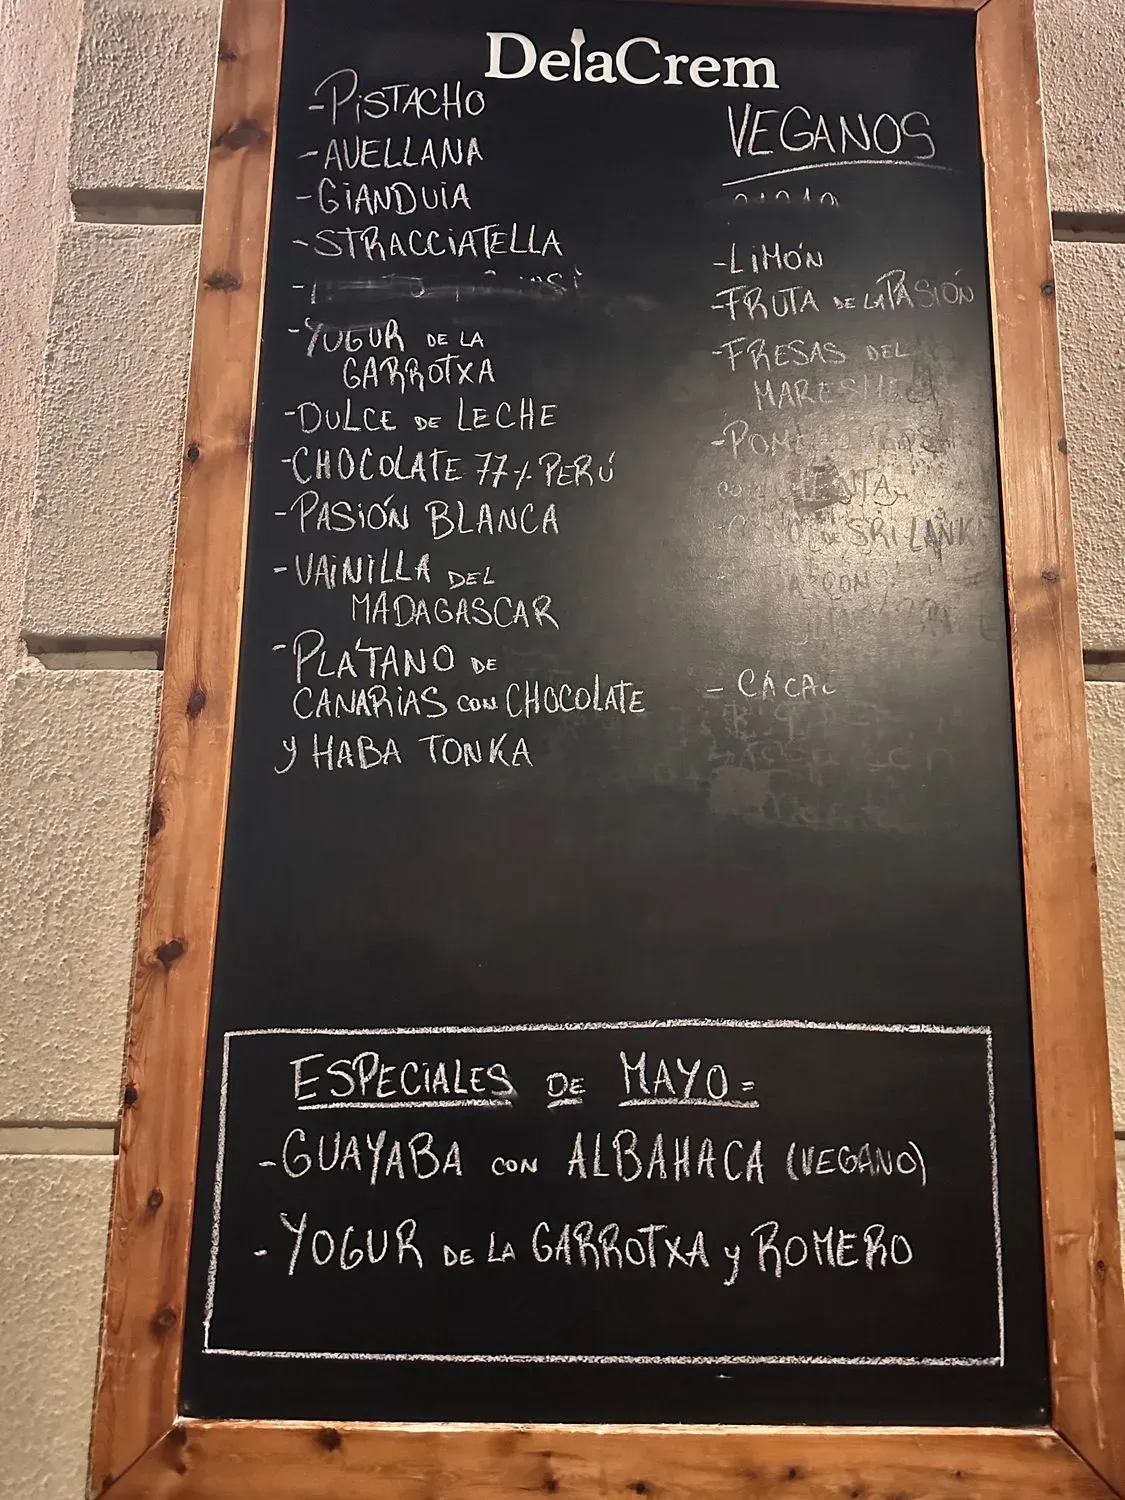 DelaCrem
-PiSTACHO
-AVELLANA
-GiANDUiA
-STRACCiATELLA
-YOGUR DE LA
GARROTXA
-DULCE DE LECHE
-CHOCOLATE 77% PERÚ
-PASiÓN BLANCA
-VAiNiLLA DEL
MADAGASCAR
-PLÁTANO DE
CANARiAS CON CHOCOLATE
Y HABA TONKA
VEGANOS
-LiMÓN
-FRUTA DE LA PASIÓN
-FRESAS DEL
MARESME
SRI LANKA
- CACAO
ESPECiALES DE MAYO=
-GUAYABA CON ALBAHACA (VEGANO)
- YOGUR DE LA GARROTXA y ROMERO